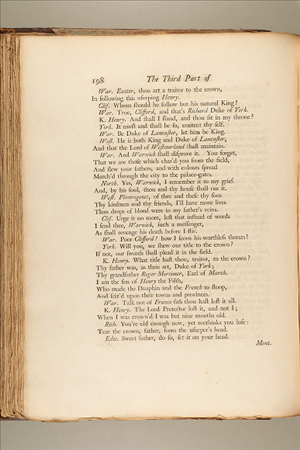 198 The Third Part of
War. Exeter, thou art a traitor to the crown,
In following this usurping Henry.
Clif. Whom should he follow but his natural King?
War. True, Clifford, and that's Richard Duke of York.
K. Henry. And shall I stand, and thou sit in my throne?
York. It must and shall be so, content thy self.
War. Be Duke of Lancaster, let him be King.
West. He is both King and Duke of Lancaster,
And that the Lord of Westmorland shall maintain.
War. And Warwick shall disprove it. You forget,
That we are those which chas'd you from the field,
And slew your fathers, and with colours spread
March'd through the city to the palace-gates.
North. Yes, Warwick, I remember it to my grief.
And, by his soul, thou and thy house shall rue it.
West. Plantagenet, of thee and these thy sons
Thy kinsmen and thy friends, I'll have more lives
Than drops of blood were in my father's veins.
Clif. Urge it no more, lest that instead of words
I send thee, Warwick, such a messenger,
As shall revenge his death before I stir.
War. Poor Clifford! how I scorn his worthless threats!
York. Will you, we shew our title to the crown?
If not, our swords shall plead it in the field.
K. Henry. What title hast thou, traitor, to the crown?
Thy father was, as thou art, Duke of York;
Thy grandfather Roger Mortimer, Earl of March.
I am the son of Henry the Fifth,
Who made the Dauphin and the French to stoop,
And seiz'd upon their towns and provinces.
War. Talk not of France sith thou hast lost it all.
K. Henry. The Lord Protector lost it, and not I;
When I was crown'd I was but nine months old.
Rich. You're old enough now, yet methinks you lose:
Tear the crown, father, from the usurper's head.
Edw. Sweet father, do so, set it on your head.
Mont.